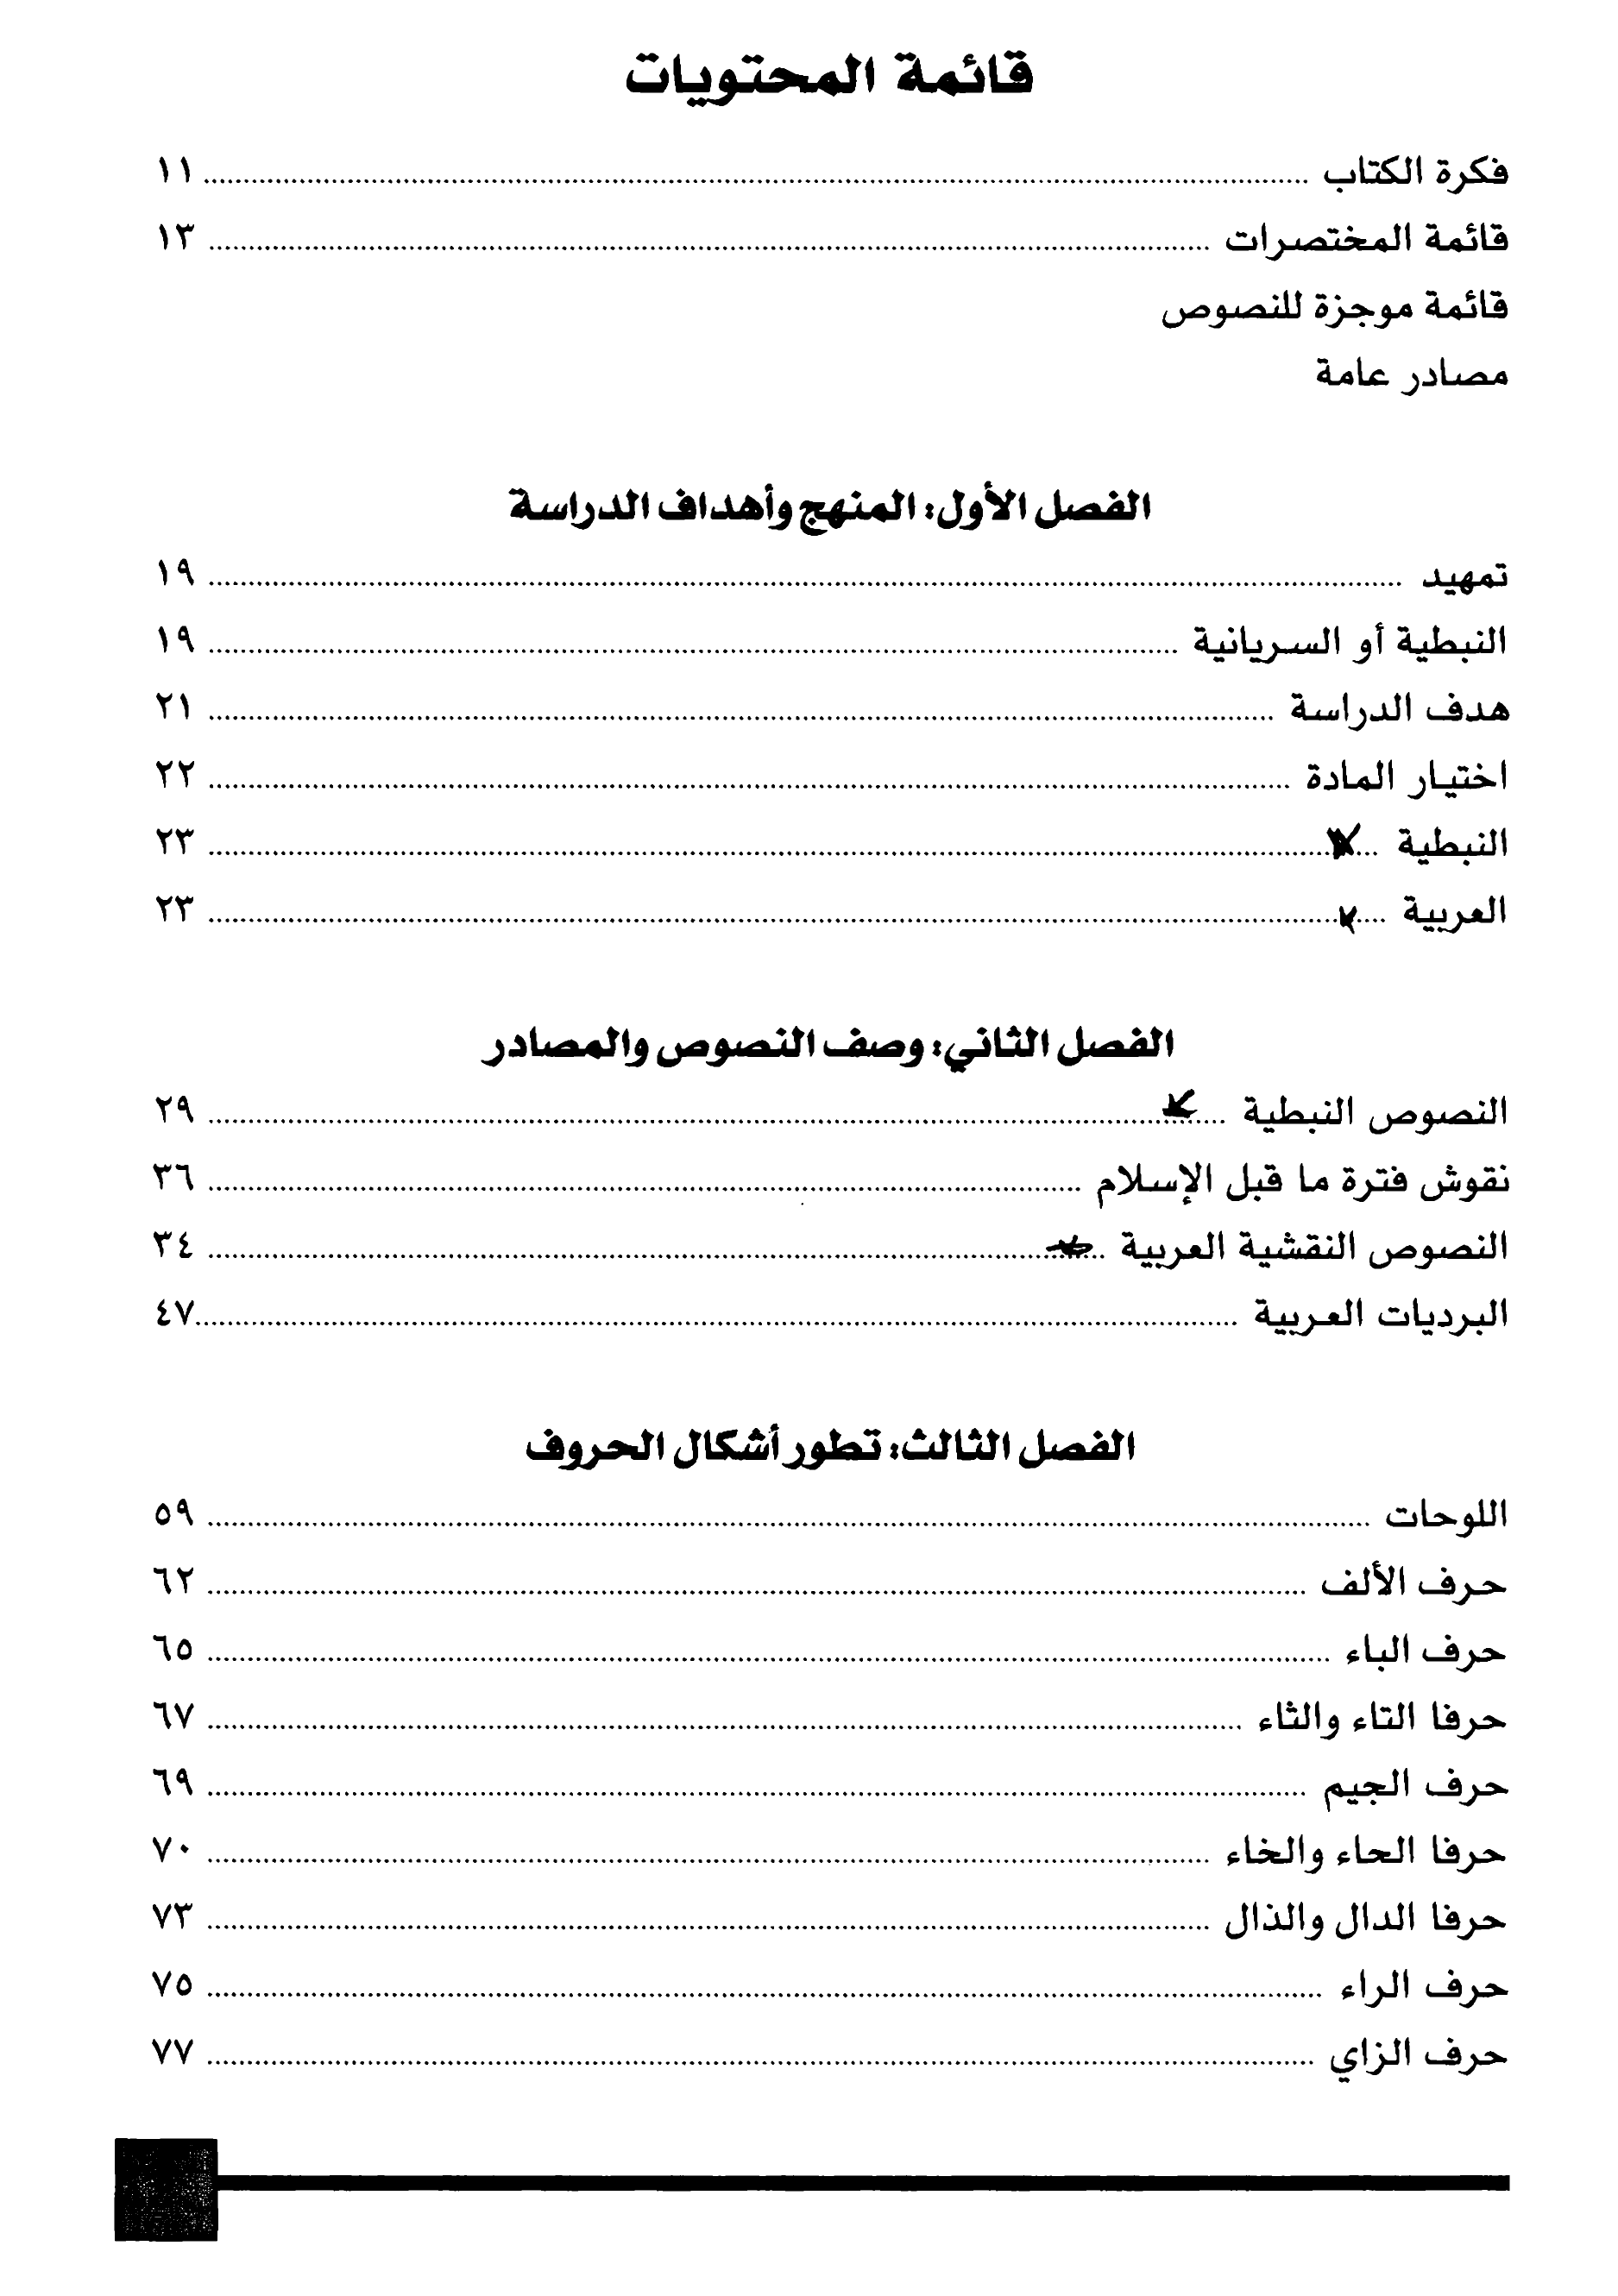 قائمة المحتويات
فكرة الكتاب ........ ١١
قائمة المختصرات ........ ١٣
قائمة موجزة للنصوص
مصادر عامة
الفصل الأول: المنهج وأهداف الدراسة
تمهيد ........ ١٩
النبطية أو السريانية ........ ١٩
هدف الدراسة ........ ٢١
اختيار المادة ........ ٢٢
النبطية ........ ٢٣
العربية ........ ٢٣
الفصل الثاني: وصف النصوص والمصادر
النصوص النبطية ........ ٢٩
نقوش فترة ما قبل الإسلام ........ ٣٦
النصوص النقشية العربية ........ ٣٤
البرديات العربية ........ ٤٧
الفصل الثالث: تطور أشكال الحروف
اللوحات ........ ٥٩
حرف الألف ........ ٦٢
حرف الباء ........ ٦٥
حرفا التاء والثاء ........ ٦٧
حرف الجيم ........ ٦٩
حرفا الحاء والخاء ........ ٧٠
حرفا الدال والذال ........ ٧٣
حرف الراء ........ ٧٥
حرف الزاي ........ ٧٧